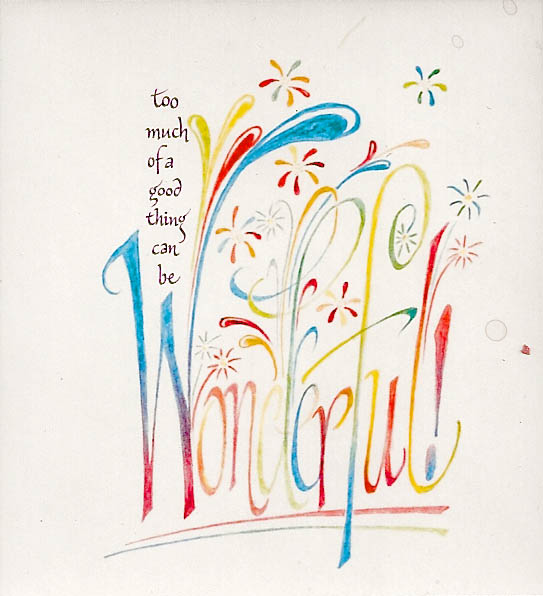 too
much
of a
good
thing
can
be
Wonderful!